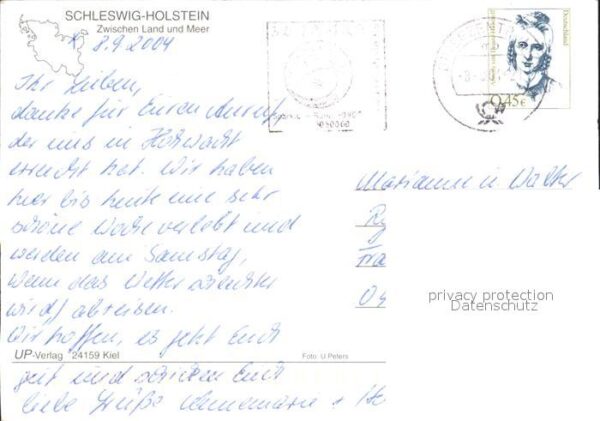 SCHLESWIG-HOLSTEIN
Zwischen Land und Meer
8.9 2004
Ihr Lieben,
danke für Euren Anruf,
der uns in Hohwacht
erreicht hat. Wir haben
hier bis heute eine sehr
schöne Woche verlebt und
werden am Samstag,
wenn das Wetter schlechter
wird, abreisen.
Wir hoffen, es geht Euch
gut und schicken Euch
liebe Grüße Annemarie +
UP-Verlag 24159 Kiel
Foto: U Peters
Deutschland
0,45€
Marianne u. Walter
privacy protection
Datenschutz